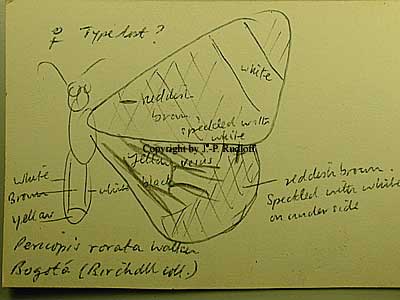 ♀ Type lost?
white
reddish
brown
speckled with
white
Copyright by J.-P. Rudloff
yellow veins
black
white
Brown
yellow
white
reddish brown.
Speckled with white
on under side
Pericopis rorata walker
Bogotá (Birchall coll.)